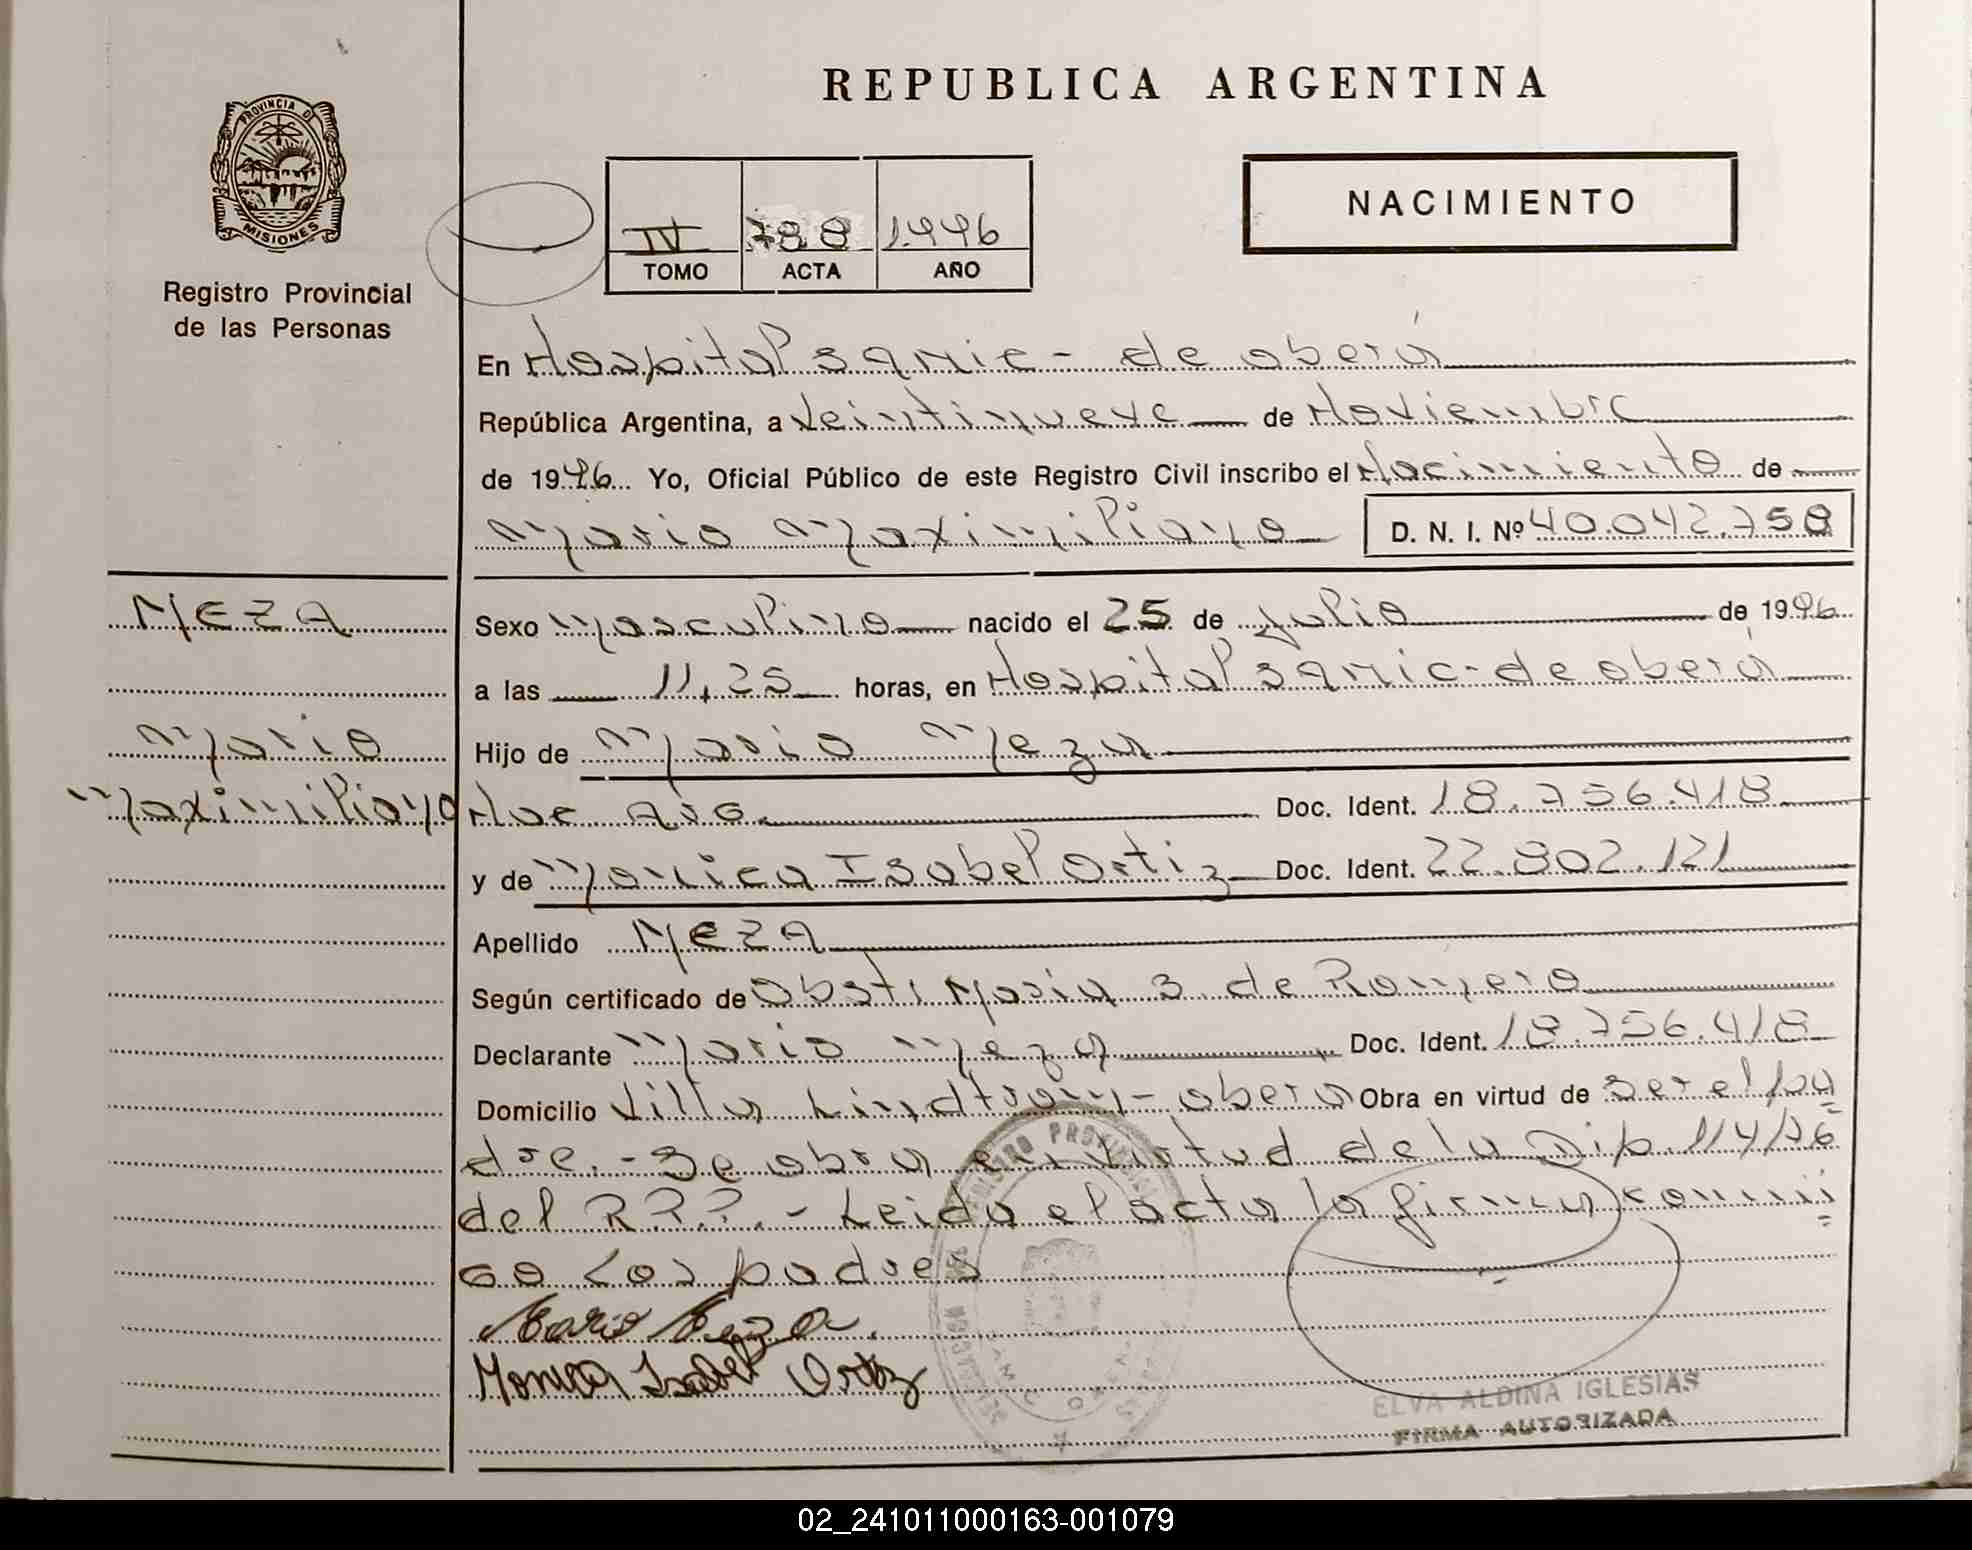 REPUBLICA ARGENTINA
PROVINCIA D
MISIONES
Registro Provincial
de las Personas
IV 788 1.996
TOMO ACTA AÑO
NACIMIENTO
En Hospital Samic - de oberá
República Argentina, a Veintinueve de Noviembre
de 1996 Yo, Oficial Público de este Registro Civil inscribo el Nacimiento de
Mario Maximiliano D. N. I. Nº 40.042.758
MEZA
Sexo Masculino nacido el 25 de Julio de 1996
a las 11,25 horas, en Hospital Samic - de oberá
Mario
Hijo de Mario Meza
Maximiliano
Doc. Ident. 18.756.418
y de Monica Isabel Ortiz Doc. Ident. 22.802.121
Apellido MEZA
Según certificado de Obst. Maria S de Romero
Declarante Mario Meza Doc. Ident. 18.756.418
Domicilio Villa Lindtrom - obera Obra en virtud de ser el pa
dre. - Se obra en virtud de la Dip. 114/76
del R.P.P. - Leida el acta la firman conmi
go Los padres
Mario Meza.
Monica Isabel Ortiz
REGISTRO PROVINCIAL
ELVA ALDINA IGLESIAS
FIRMA AUTORIZADA
02_241011000163-001079